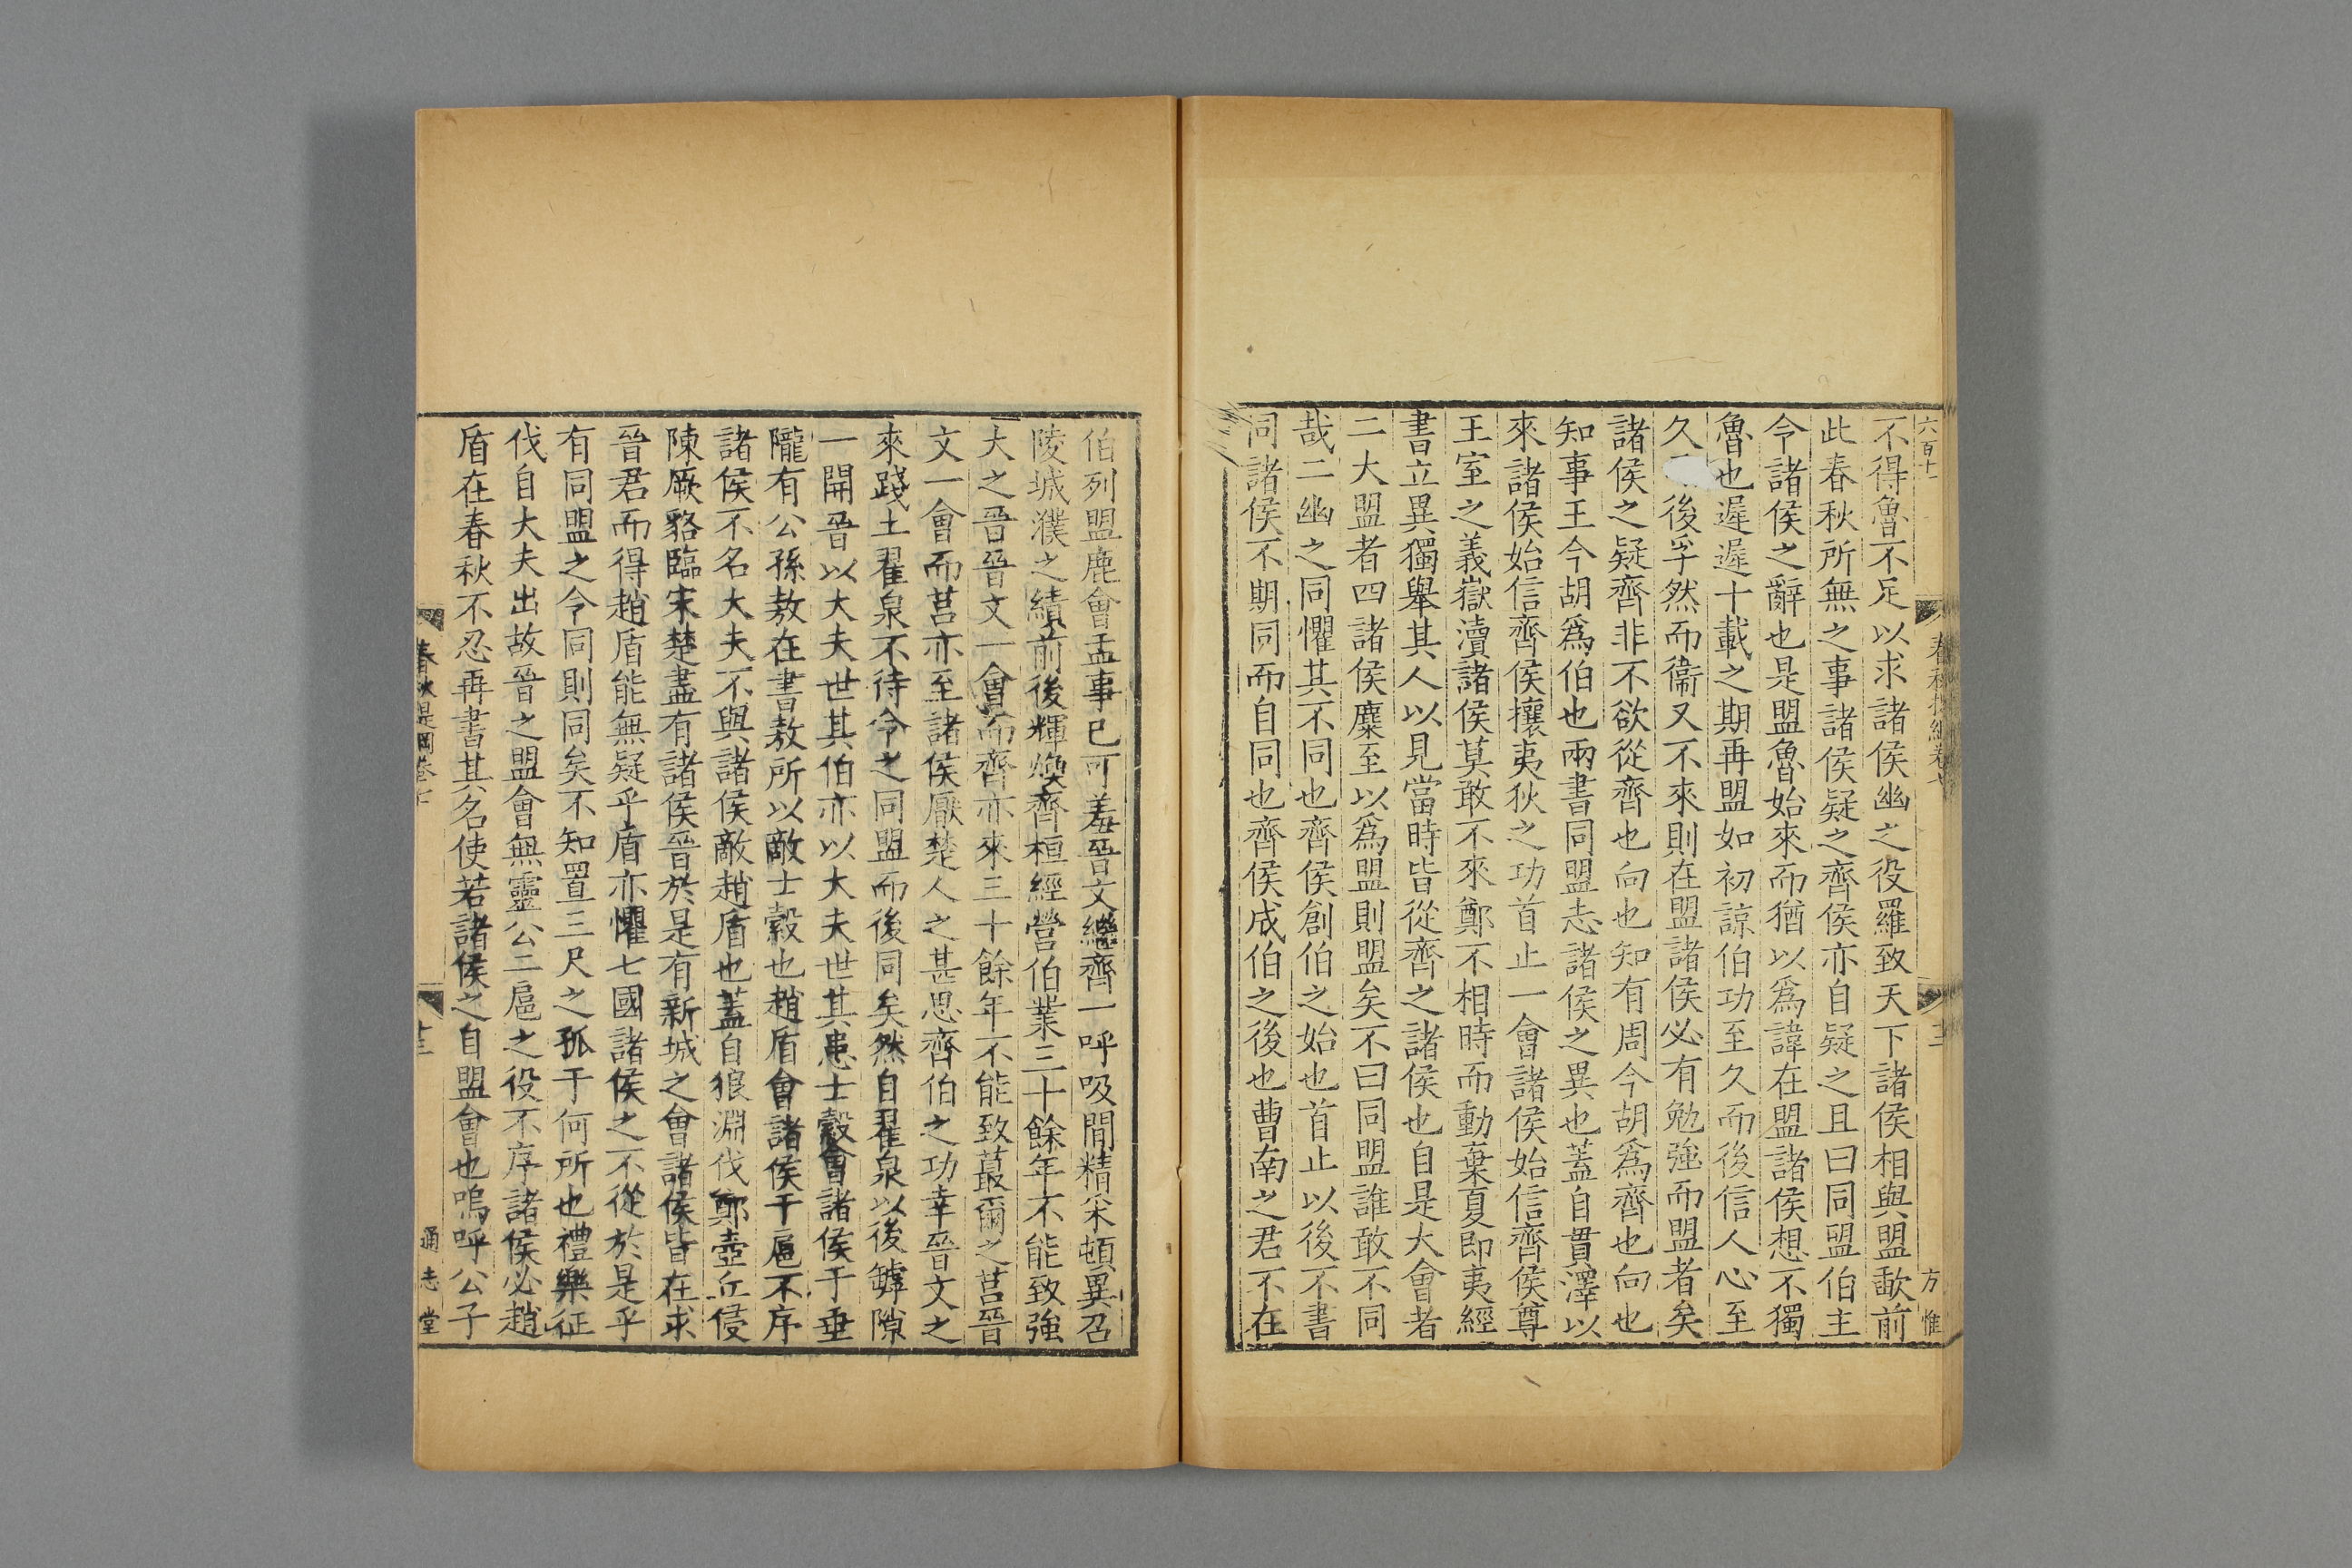 不得魯不足以求諸侯幽之役羅致天下諸侯相與盟歃前
此春秋所無之事諸侯疑之齊侯亦自疑之且曰同盟伯主
令諸侯之辭也是盟魯始來而猶以爲諱在盟諸侯想不獨
魯也遲遲十載之期再盟如初諒伯功至久而後信人心至
久後孚然而衞又不來則在盟諸侯必有勉強而盟者矣
諸侯之疑齊非不欲從齊也向也知有周今胡爲齊也向也
知事王今胡爲伯也兩書同盟志諸侯之異也蓋自貫澤以
來諸侯始信齊侯攘夷狄之功首止一會諸侯始信齊侯尊
王室之義嶽瀆諸侯莫敢不來鄭不相時而動棄夏即夷經
書立異獨舉其人以見當時皆從齊之諸侯也自是大會者
二大盟者四諸侯麋至以爲盟則盟矣不曰同盟誰敢不同
哉二幽之同懼其不同也齊侯創伯之始也首止以後不書
同諸侯不期同而自同也齊侯成伯之後也曹南之君不在
六百十一
方惟
伯列盟鹿會盂事已可羞晉文繼齊一呼吸間精采頓異召
陵城濮之績前後輝煥齊桓經營伯業三十餘年不能致強
大之晉晉文一會而齊亦來三十餘年不能致蕞爾之莒晉
文一會而莒亦至諸侯厭楚人之甚思齊伯之功幸晉文之
來踐土翟泉不待令之同盟而後同矣然自翟泉以後罅隙
一開晉以大夫世其伯亦以大夫世其患士縠會諸侯于垂
隴有公孫敖在書敖所以敵士縠也趙盾會諸侯于扈不序
諸侯不名大夫不與諸侯敵趙盾也蓋自狼淵伐鄭壺丘侵
陳厥貉臨宋楚盡有諸侯晉於是有新城之會諸侯皆在求
晉君而得趙盾能無疑乎盾亦懼七國諸侯之不從於是乎
有同盟之令同則同矣不知置三尺之孤于何所也禮樂征
伐自大夫出故晉之盟會無靈公二扈之役不序諸侯必趙
盾在春秋不忍再書其名使若諸侯之自盟會也嗚呼公子
春秋提綱卷七
通志堂